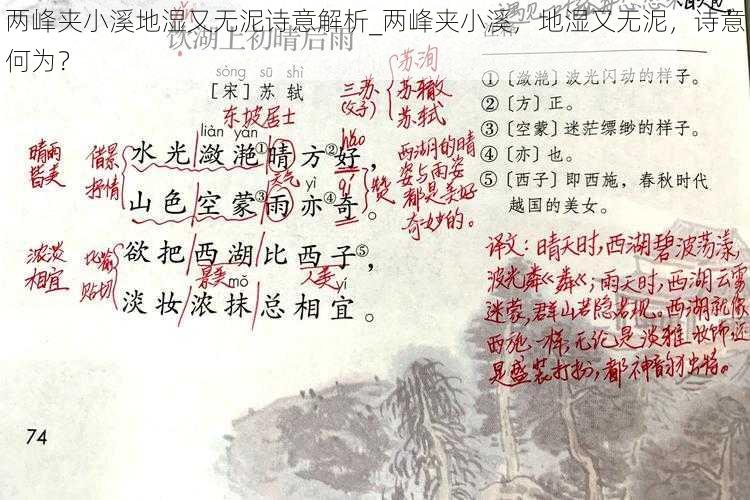 两峰夹小溪地湿又无泥诗意解析_两峰夹小溪，地湿又无泥，诗意
何为？
饮湖上初晴后雨
sòng sū shì
[宋] 苏 轼
东坡居士
三苏
(父子)
苏洵
苏辙
苏轼
晴雨
皆美
借景
抒情
liàn yàn
水光潋滟①晴方②好，
hǎo
天气
yì
qí
山色空蒙③雨亦④奇。
赞
西湖的晴
姿与雨姿
都是美好
奇妙的。
浓淡
相宜
比喻
贴切
欲把西湖比西子⑤，
景美
人美
mǒ
yí
淡妆浓抹总相宜。
①〔潋滟〕波光闪动的样子。
②〔方〕正。
③〔空蒙〕迷茫缥缈的样子。
④〔亦〕也。
⑤〔西子〕即西施，春秋时代
越国的美女。
译文：晴天时，西湖碧波荡漾，
波光粼粼；雨天时，西湖云雾
迷蒙，群山若隐若现。西湖就像
西施一样，无论是淡雅妆饰，还
是盛装打扮，都神韵独特。
74